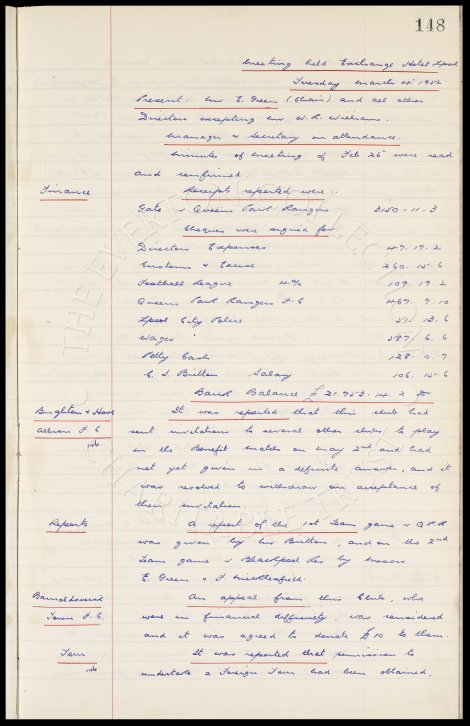 148
Meeting held Exchange Hotel L'pool
Tuesday March 4th 1952
Present:- Mr E. Green (Chair) and all other
Directors excepting Mr W. R. Williams.
Manager & Secretary in attendance.
Minutes of meeting of Feb 26 were read
and confirmed.
Finance
Receipts reported were:-
Gate v Queens Park Rangers 3150-11-3
Cheques were signed for
Directors Expenses 47.19.2
Customs & Excise 260.15.6
Football League 4% 109.19.2
Queens Park Rangers F.C 467.9.10
L'pool City Police 13.6
Wages 587.6.6
Petty Cash 128.0.7
C. S. Britton Salary 106.15.6
Bank Balance £21.753.14.2 Dr
Brighton & Hove
Albion F.C
It was reported that this club had
sent invitations to several other clubs to play
in the Benefit match on May 2nd and had
not yet given us a definite answer, and it
was resolved to withdraw our acceptance of
their invitation.
Reports
A report of the 1st Team game v Q.P.R
was given by Mr Britton, and on the 2nd
Team game v Blackpool Res by Messrs
E. Green & F. Micklesfield.
Barnoldswick
Town F.C.
An appeal from this Club, who
were in financial difficulty was considered
and it was agreed to donate £10 to them.
Tour
It was reported that permission to
undertake a Foreign Tour had been obtained,
THE EVERTON COLLECTION
CHARITABLE TRUST